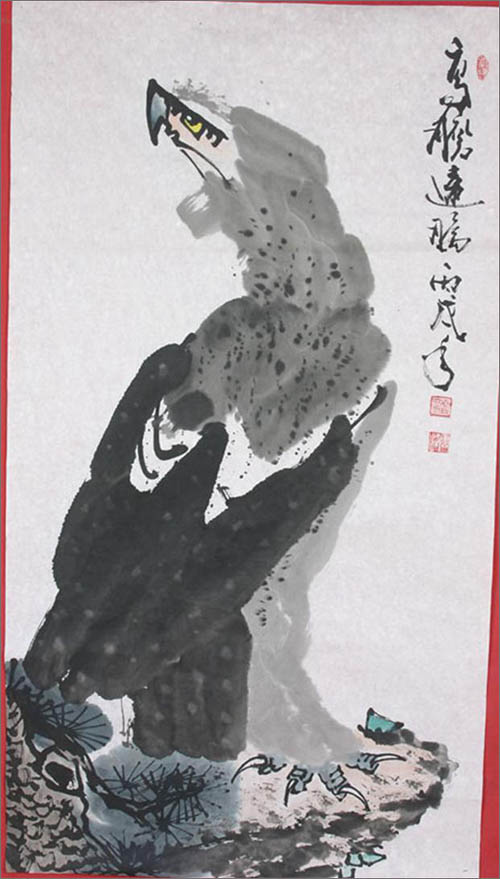 高瞻遠瞩丙戌年